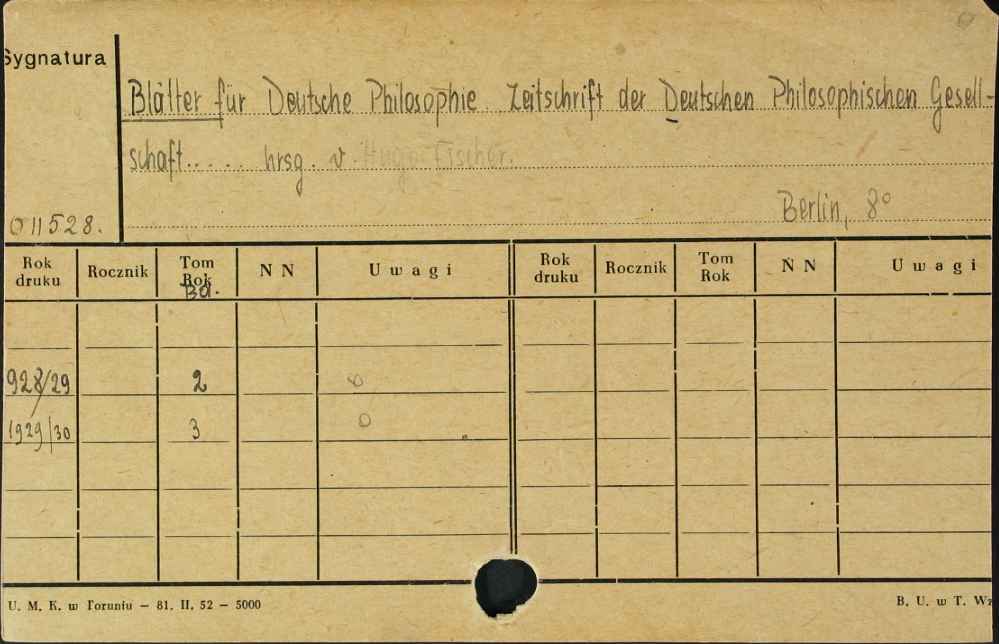 Sygnatura
Blätter für Deutsche Philosophie. Zeitschrift der Deutschen Philosophischen Gesell-
schaft..... hrsg. v. Hugo Fischer.
Berlin, 8°
011528.
Rok druku Rocznik Tom Rok Bd. N N Uwagi Rok druku Rocznik Tom Rok N N Uwagi
928/29 2 0
1929/30 3 0
U. M. K. w Toruniu – 81. II. 52 – 5000 B. U. w T. Wz